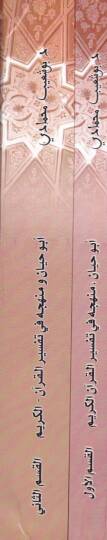 د. بوشعيب محمادي
أبو حيان و منهجه في تفسير القرآن الكريم
القسم الثاني
د. بوشعيب محمادي
أبو حيان و منهجه في تفسير القرآن الكريم
القسم الأول